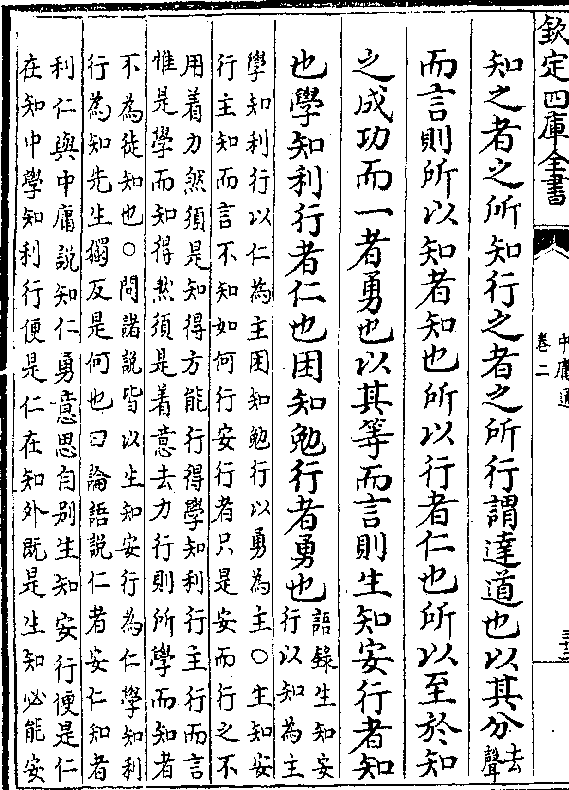 欽定四庫全書
中庸通
卷二
知之者之所知行之者之所行謂達道也以其分去聲
而言則所以知者知也所以行者仁也所以至於知
之成功而一者勇也以其等而言則生知安行者知
也學知利行者仁也困知勉行者勇也語錄生知安
行以知為主
學知利行以仁為主困知勉行以勇為主○生知安
行主知而言不知如何行安行者只是安而行之不
用着力然須是知得方能行得學知利行主行而言
惟是學而知得然須是着意去力行則所學而知者
不為徒知也○問諸說皆以生知安行為仁學知利
行為知先生獨反是何也曰論語說仁者安仁知者
利仁與中庸說知仁勇意思自别生知安行便是仁
在知中學知利行便是仁在知外既是生知必能安